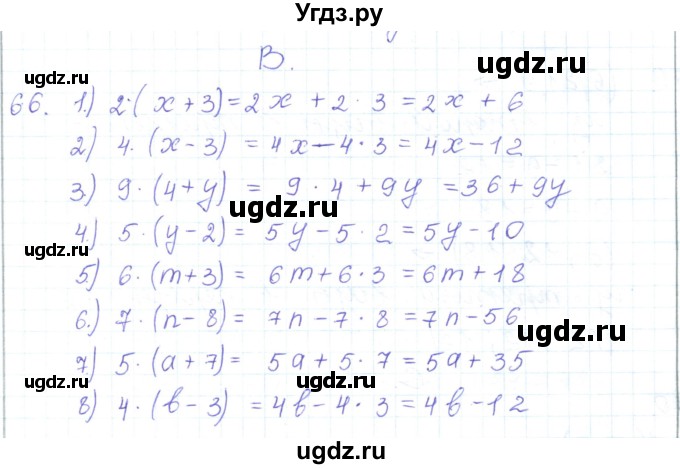 Угдз.ру
В.
66. 1.) 2·(x+3)=2x + 2·3 = 2x + 6
2) 4·(x-3) = 4x-4·3 = 4x-12
3.) 9·(4+y) = 9·4+9y =36+9y
4.) 5·(y-2) = 5y-5·2=5y-10
5) 6·(m+3) = 6m+6·3=6m+18
6.) 7·(n-8) = 7n-7·8=7n-56
7.) 5·(a+7) = 5a+5·7=5a+35
8) 4·(b-3) =4b-4·3=4b-12
ugdz.ru
ugdz.ru
ugdz.ru
ugdz.ru
ugdz.ru
ugdz.ru
ugdz.ru
ugdz.ru
ugdz.ru